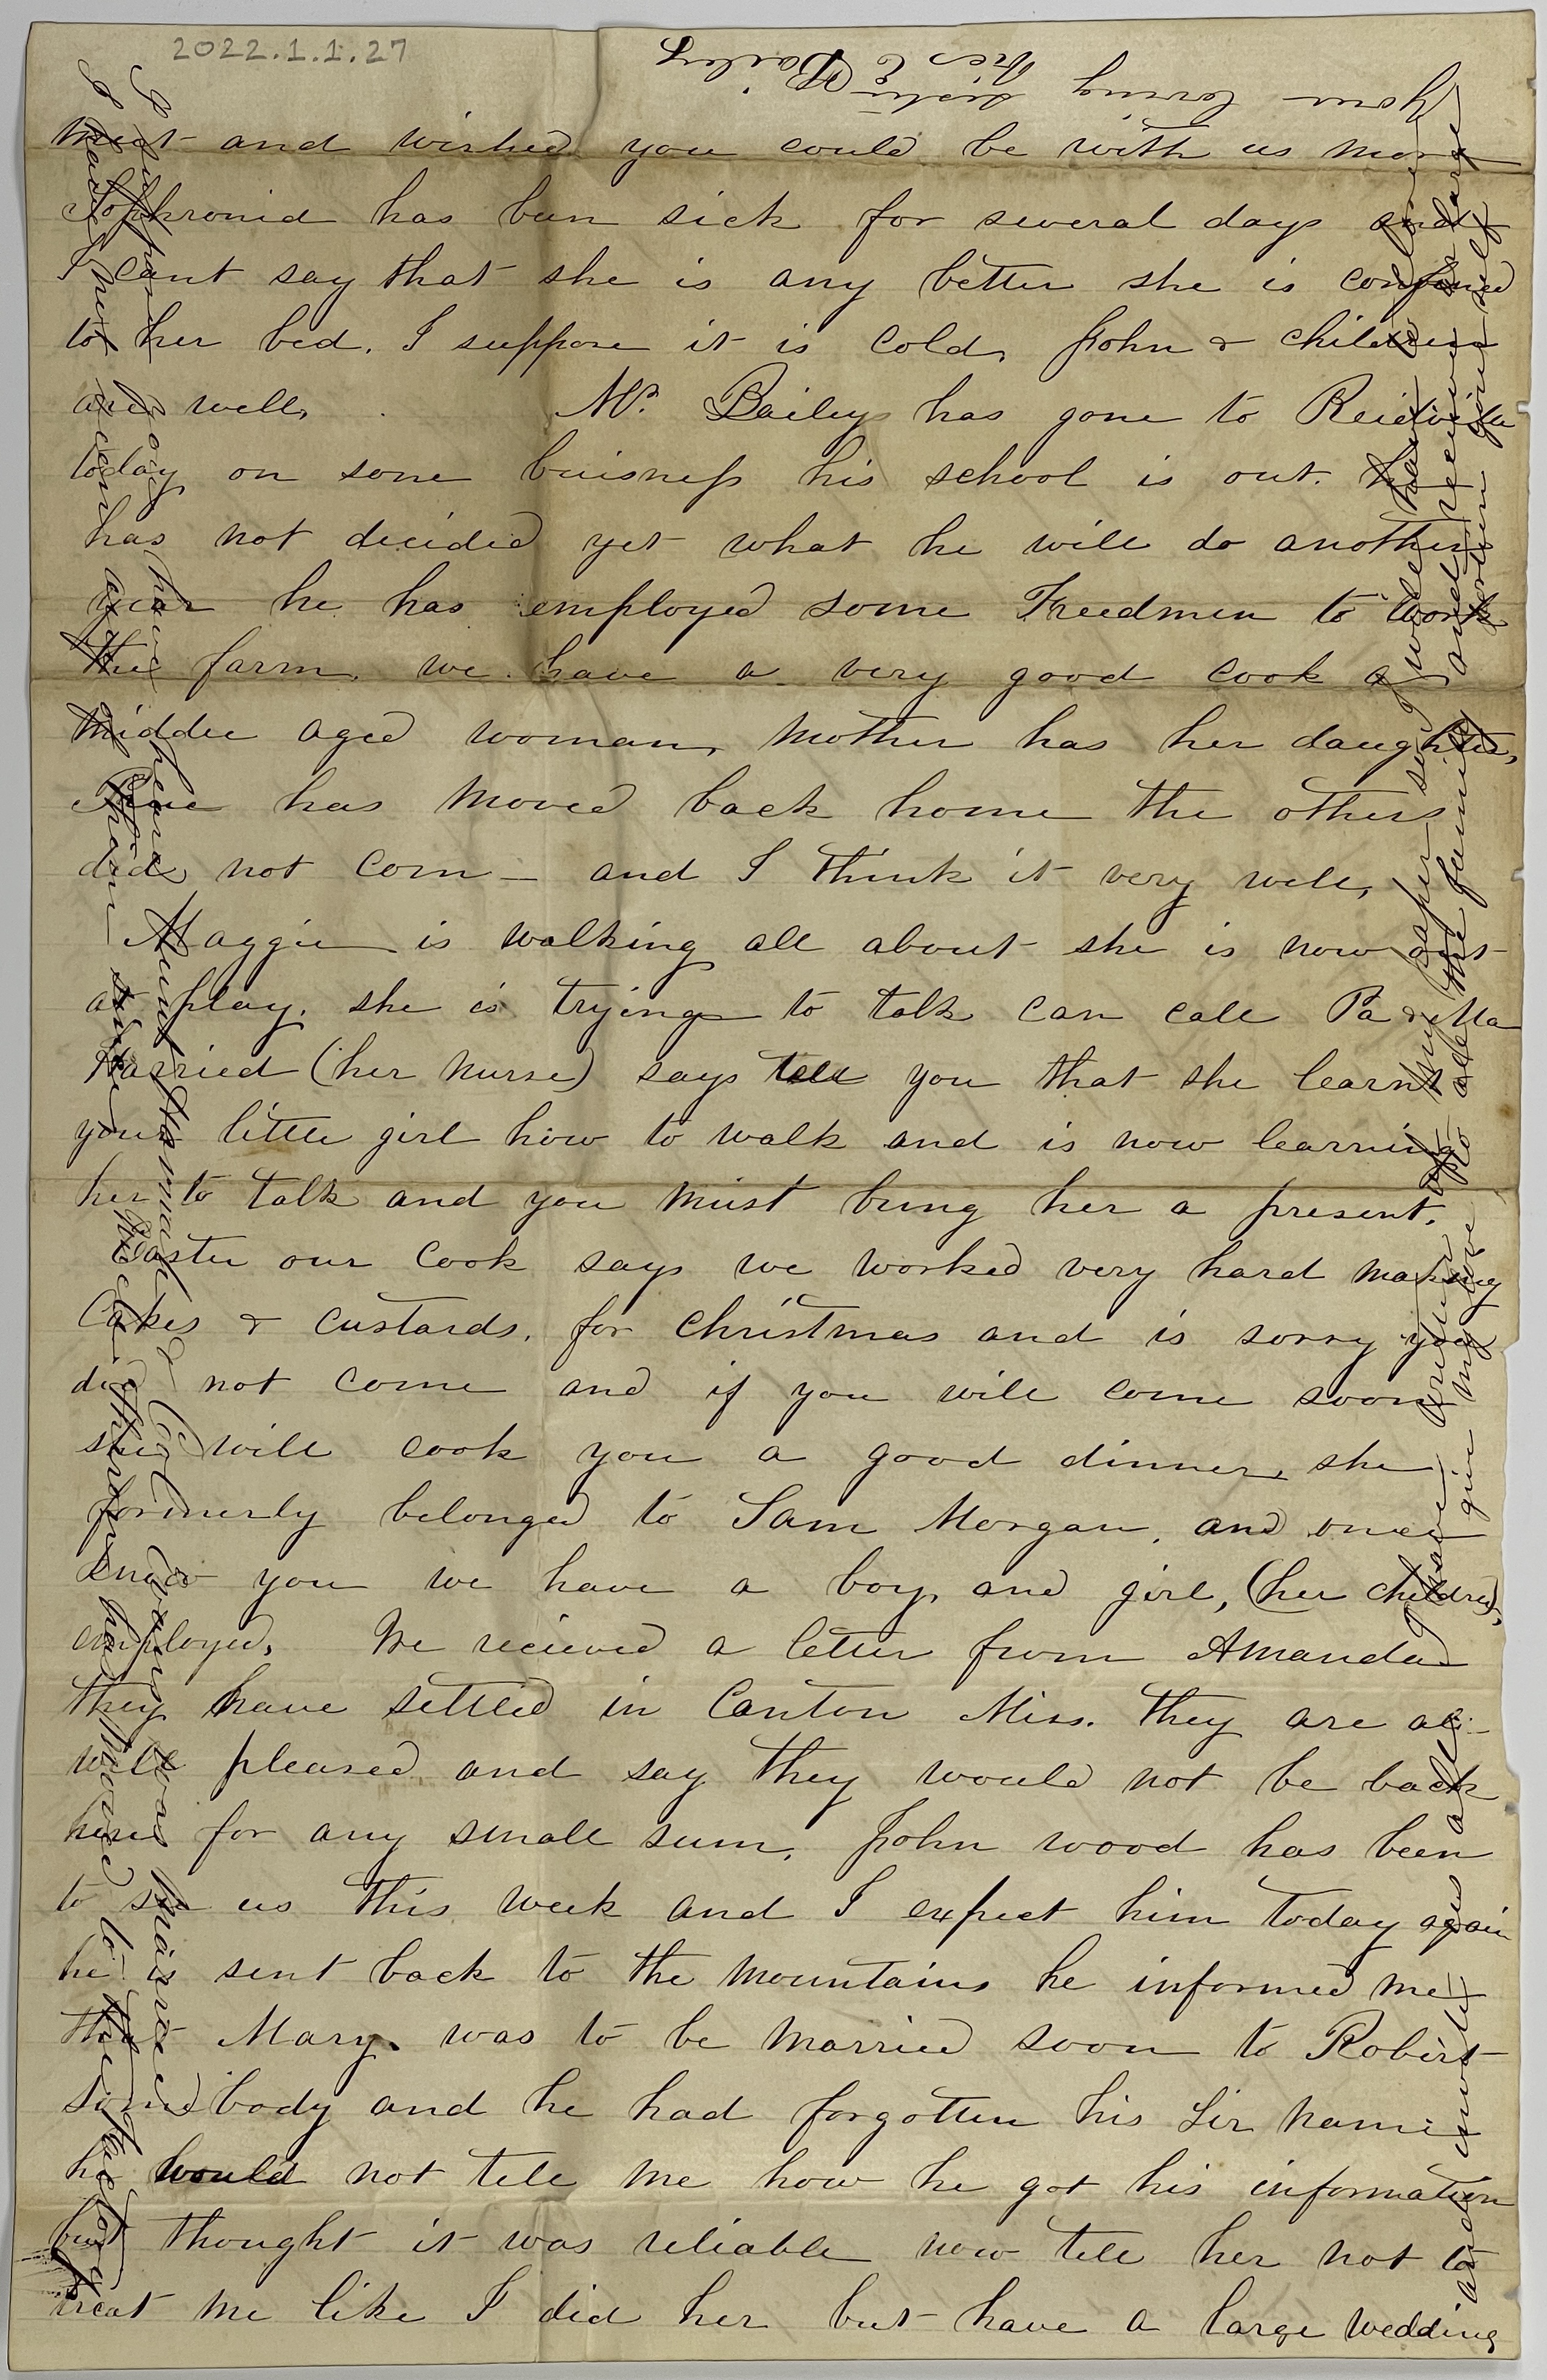 2022.1.1.27
meet and wished you could be with us more
Sophronia has been sick for several days and
I cant say that she is any better she is confined
to her bed. I suppose it is cold, John & children
are well, Mr. Bailey has gone to Reidville
today on some buisness his school is out. he
has not decided yet what he will do another
year he has employed some Freedmen to work
the farm. we have a very good cook a
middle aged woman, Mother has her daughter,
has moved back home the others
did not com— and I think it very well,
Maggie is walking all about she is now out
at play. she is trying to talk can call Pa & Ma
Harried (her nurse) says tell you that she learnt
your little girl how to walk and is now learning
her to talk and you must bring her a present.
Easter our cook says we worked very hard making
Cakes & custards. for christmas and is sorry you
did not come and if you will come soon
she will cook you a good dinner, she
formerly belonged to Sam Morgan, and once
knew you we have a boy, and girl, (her children,
employed. We recieved a letter from Amanda
they have settled in Canton Miss. they are all
well pleased and say they would not be back
here for any small sum, John wood has been
to see us this week and I expect him today again
he is sent back to the mountains he informed me
that Mary was to be married soon to Robert
somebody and he had forgotten his sir name
he would not tell me how he got his information
but thought it was reliable now tell her not to
treat me like I did her but have a large wedding
and invite us all. I have written up my paper so I will have to close
give my love to all the family and receive a large
portion yourself
Your loving sister
Mrs C Bailey